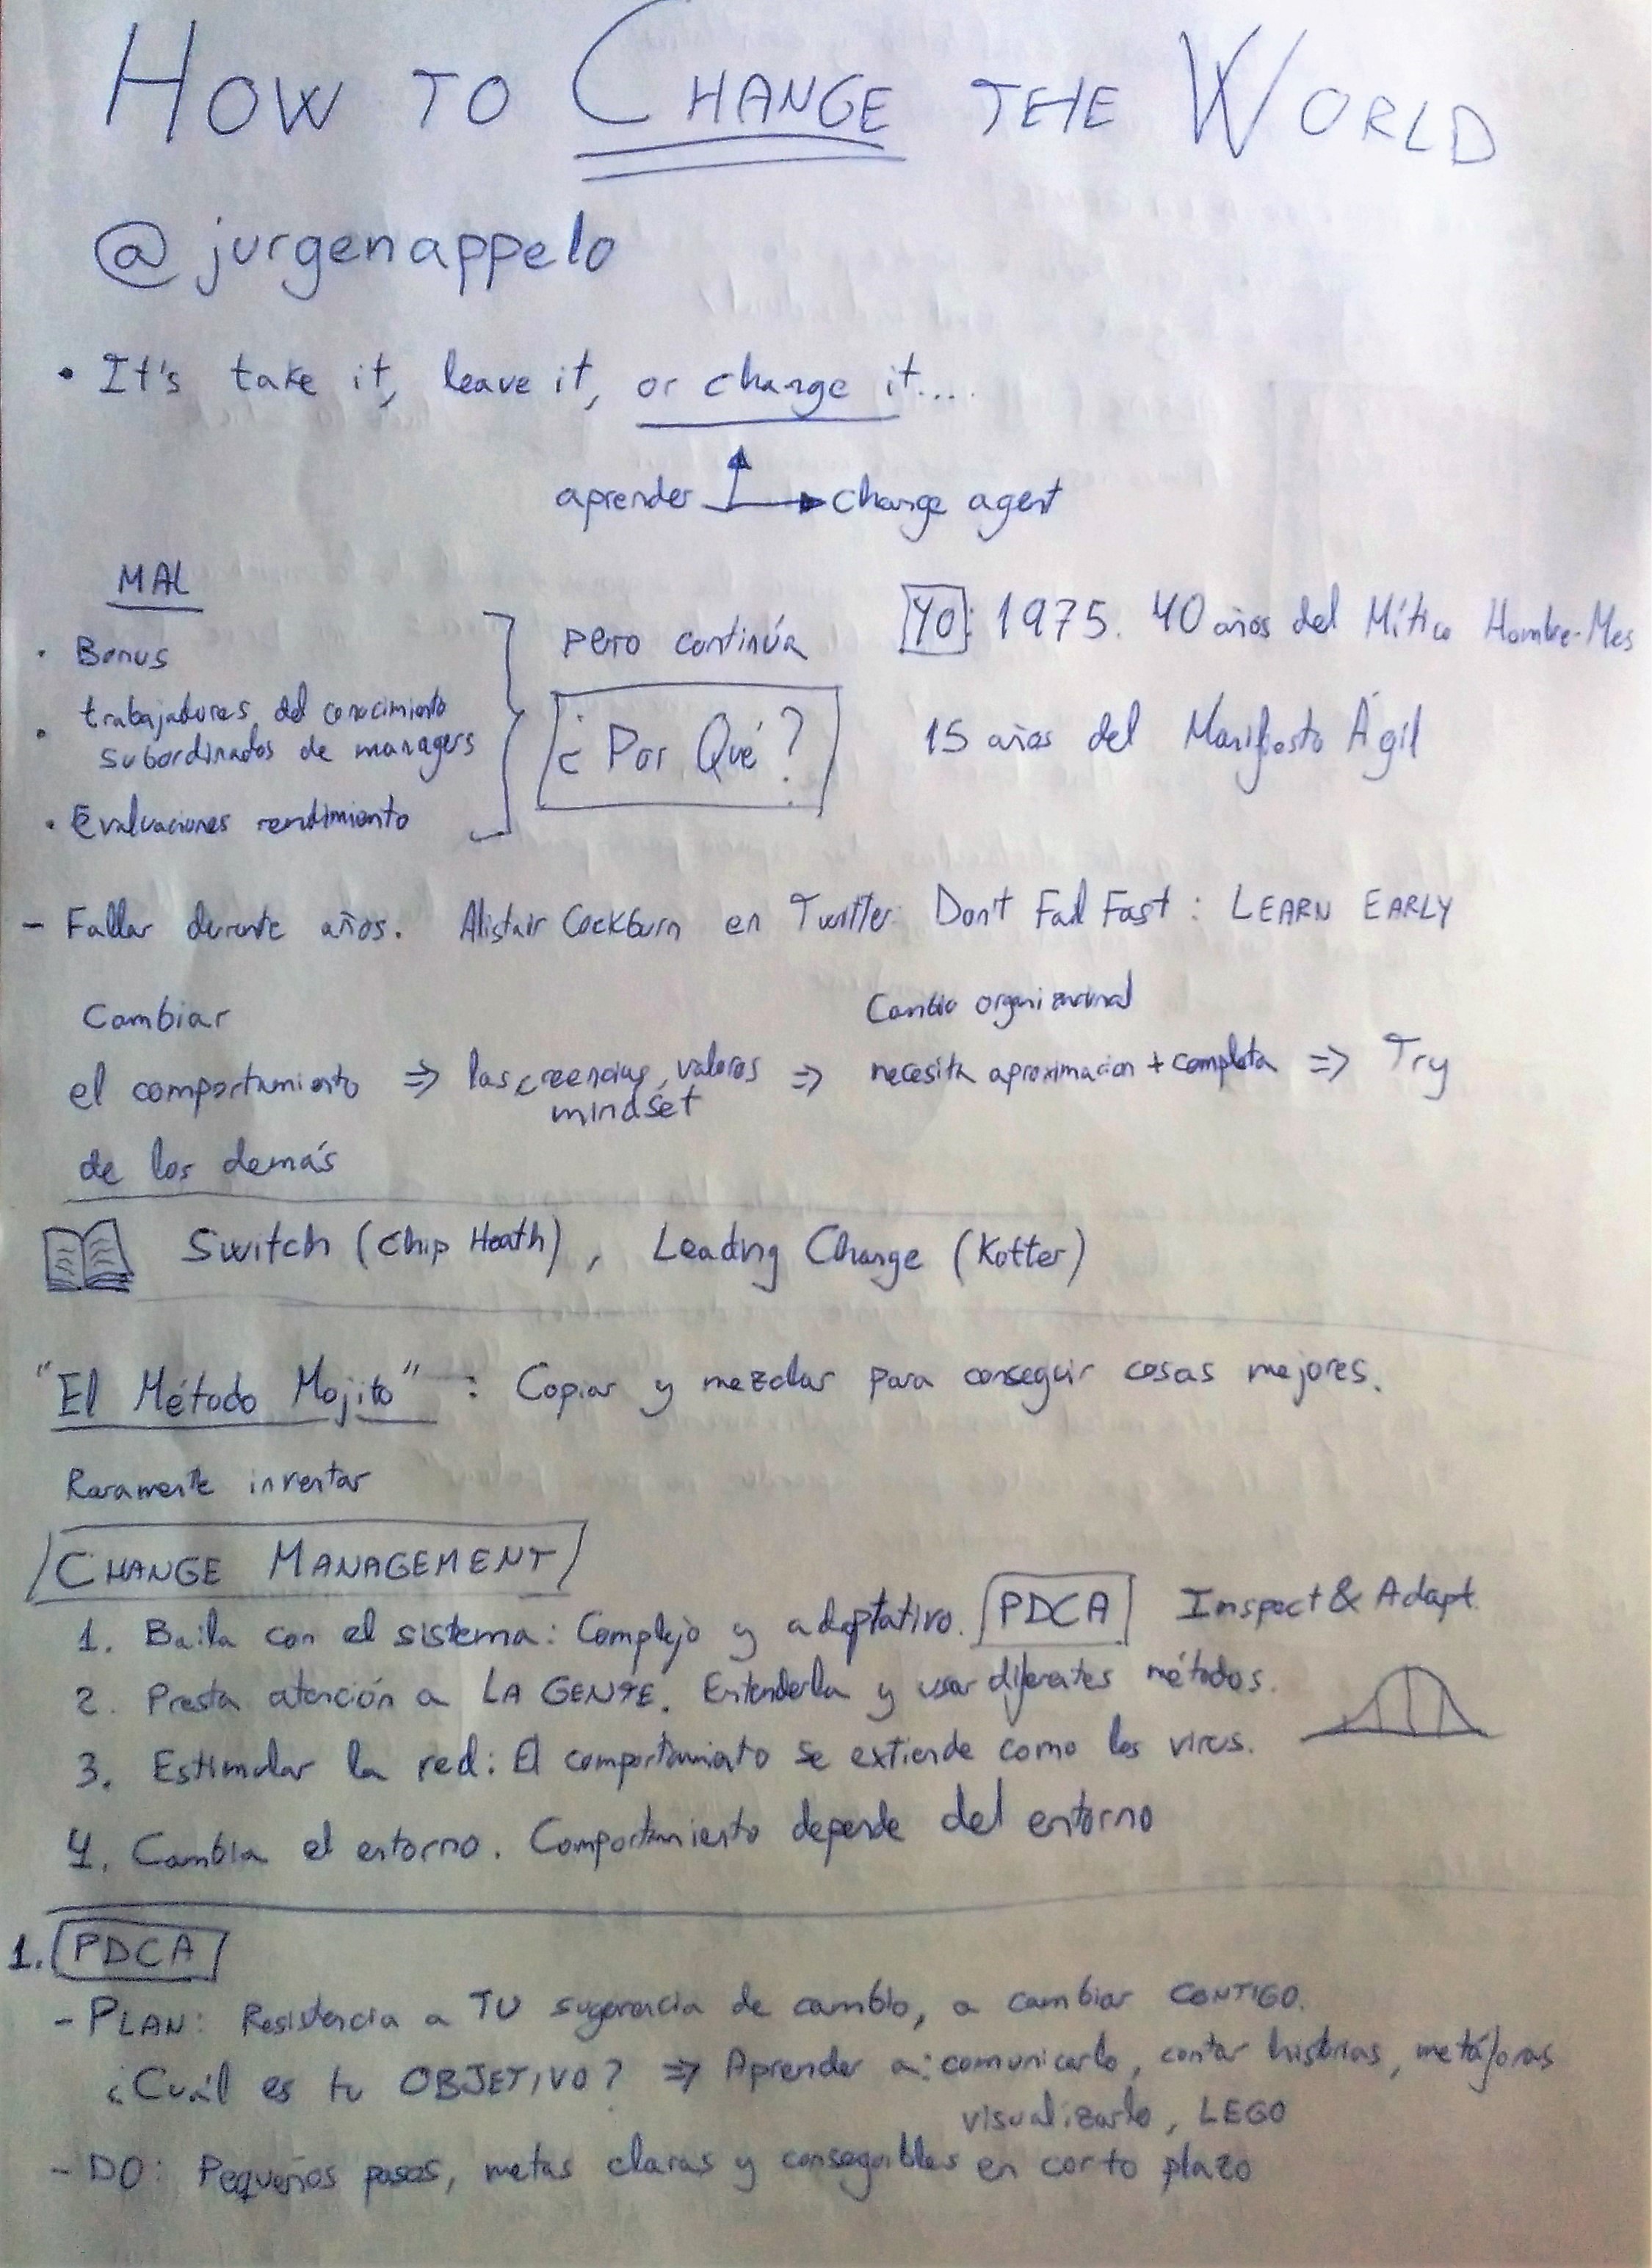 HOW TO CHANGE THE WORLD
@jurgenappelo
• It's take it, leave it, or change it....
aprender change agent
MAL
• Bonus
• trabajadores del conocimiento
subordinados de managers
• Evaluaciones rendimiento
pero continúa
¿Por Qué?
Yo: 1975. 40 años del Mítico Hombre-Mes
15 años del Manifiesto Ágil
- Fallar durante años. Alistair Cockburn en Twitter: Don't Fail Fast: LEARN EARLY
Cambiar
el comportamiento ⇒ las creencias, valores
mindset
de los demás
Cambio organizacional
⇒ necesita aproximacion + completa ⇒ Try
Switch (Chip Heath), Leading Change (Kotter)
"El Método Mojito": Copiar y mezclar para conseguir cosas mejores.
Raramente inventar
CHANGE MANAGEMENT
1. Baila con el sistema: Complejo y adaptativo. PDCA Inspect & Adapt.
2. Presta atención a LA GENTE. Entenderla y usar diferentes métodos.
3. Estimular la red: El comportamiento se extiende como los virus.
4. Cambia el entorno. Comportamiento depende del entorno
1. PDCA
- PLAN: Resistencia a TU sugerencia de cambio, a cambiar CONTIGO.
¿Cuál es tu OBJETIVO? ⇒ Aprender a: comunicarlo, contar historias, metáforas
visualizarlo, LEGO
- DO: Pequeños pasos, metas claras y conseguibles en corto plazo